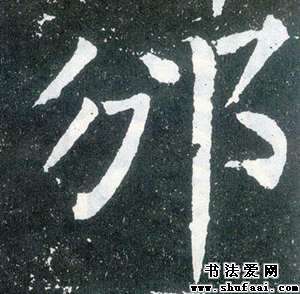 邠
书法爱网
www.shufaai.com